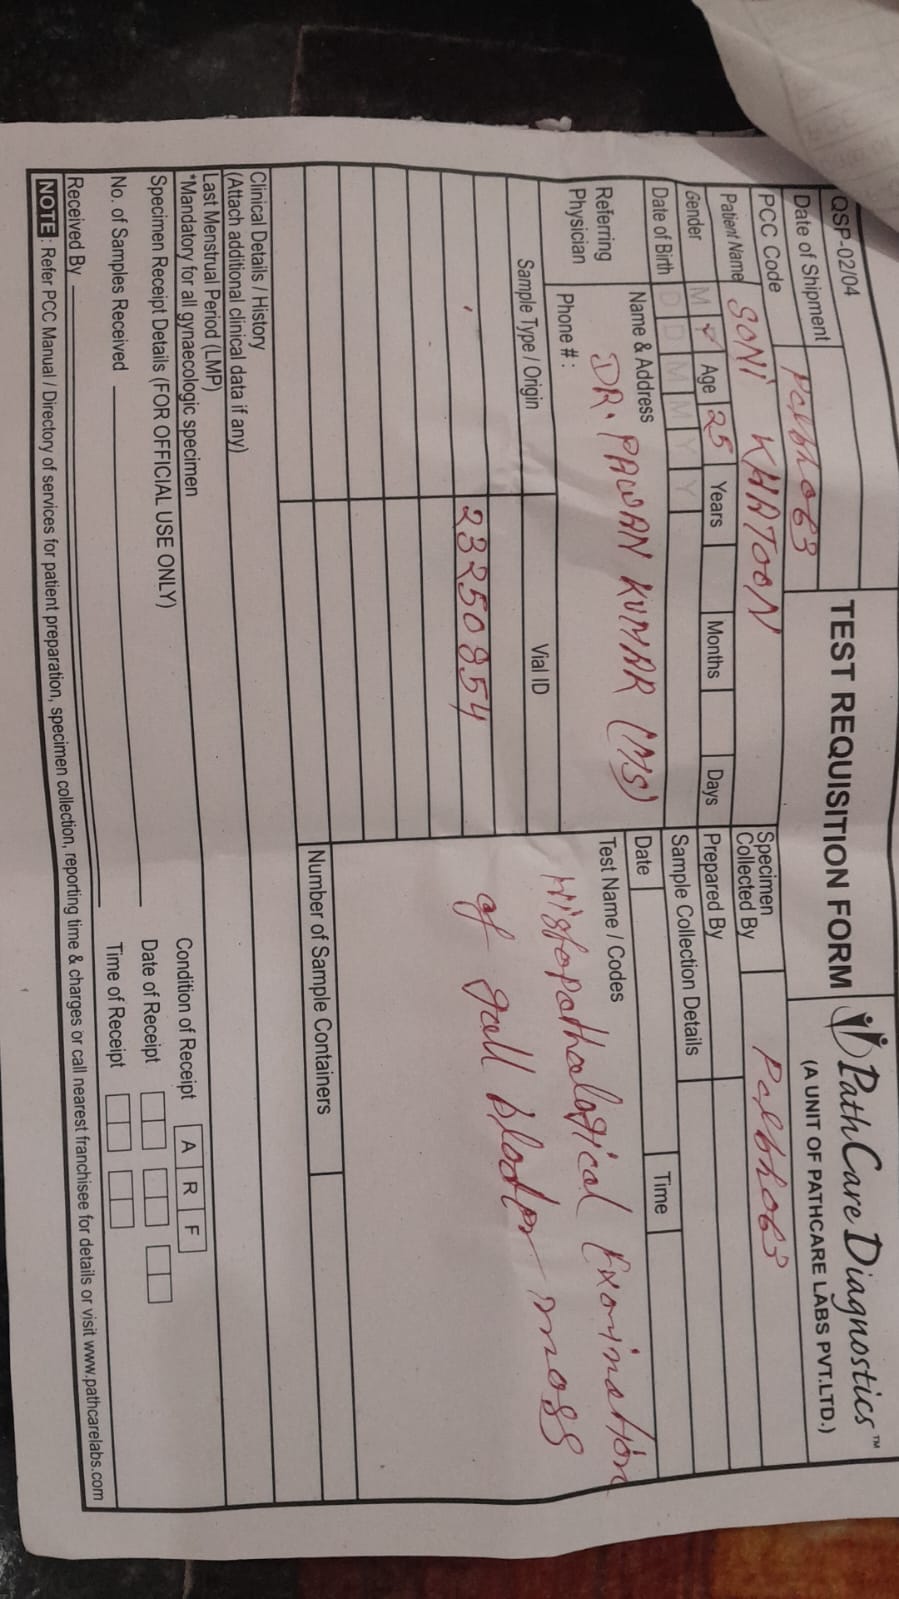 QSP-02/04
TEST REQUISITION FORM
PathCare Diagnostics™
(A UNIT OF PATHCARE LABS PVT.LTD.)
Date of Shipment
PCC Code Pclbh063
Patient Name SONI KHATOON
Gender M F Age 25 Years Months Days
Date of Birth D D M M Y Y
Referring Physician
Name & Address
DR. PAWAN KUMAR (MS)
Phone # :
Specimen Collected By Pclbh063
Prepared By
Sample Collection Details
Date Time
Test Name / Codes
Histopathological Examination
of gall bladder mass
Sample Type / Origin Vial ID
23250854
Number of Sample Containers
Clinical Details / History
(Attach additional clinical data if any)
Last Menstrual Period (LMP)
*Mandatory for all gynaecologic specimen
Specimen Receipt Details (FOR OFFICIAL USE ONLY)
Condition of Receipt A R F
No. of Samples Received
Date of Receipt
Received By
Time of Receipt
NOTE : Refer PCC Manual / Directory of services for patient preparation, specimen collection, reporting time & charges or call nearest franchisee for details or visit www.pathcarelabs.com